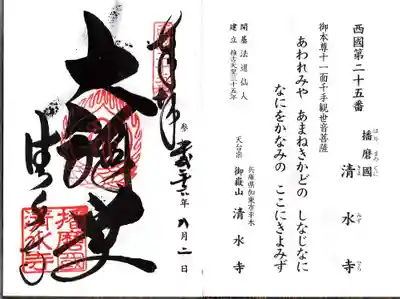 西國第二十五番
播磨國 清水寺
はり まの くに きよ みず でら
御本尊十一面千手観世音菩薩
あわれみや あまねきかどの しなじなに
なにをかなみの ここにきよみず
兵庫県加東市平木
天台宗 御嶽山 清水寺
開基 法道仙人
建立 推古天皇三十五年
奉拝
大講堂
清水寺
年 九月二日
播磨國
清水寺